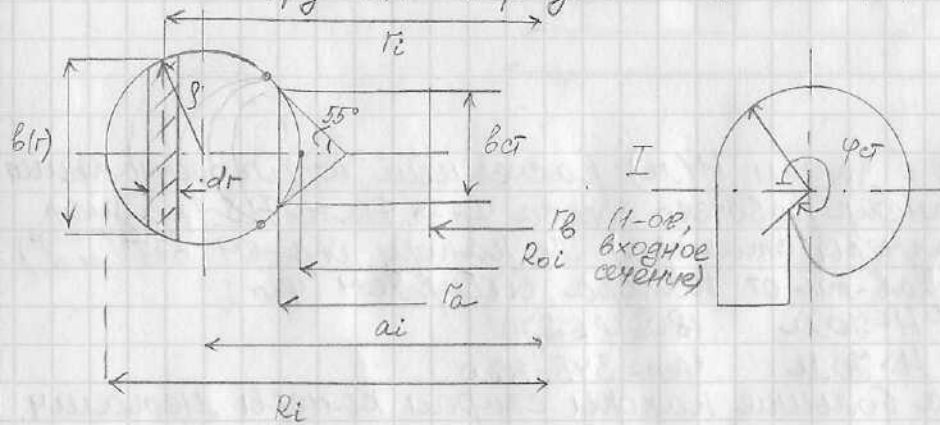 ri
в(r)
ρ
dr
55°
вст
rв
Roi
ra
ai
Ri
I
(1-ое,
входное
сечение)
φст